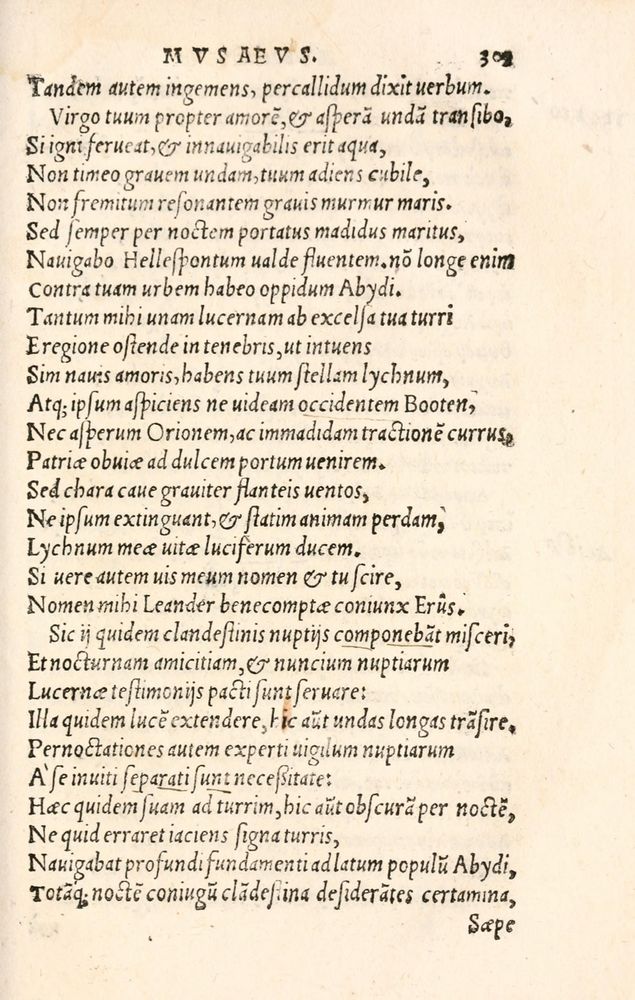 MVSAEVS. 302
Tandem autem ingemens, percallidum dixit uerbum.
Virgo tuum propter amorē, & asperā undā transibo,
Si igni ferueat, & innauigabilis erit aqua,
Non timeo grauem undam, tuum adiens cubile,
Non fremitum resonantem grauis murmur maris.
Sed semper per noctem portatus madidus maritus,
Nauigabo Hellespontum ualde fluentem. nō longe enim
Contra tuam urbem habeo oppidum Abydi.
Tantum mihi unam lucernam ab excelsa tua turri
E regione ostende in tenebris, ut intuens
Sim nauis amoris, habens tuum stellam lychnum,
Atq; ipsum aspiciens ne uideam occidentem Booten,
Nec asperum Orionem, ac immadidam tractionē currus,
Patriæ obuiæ ad dulcem portum uenirem.
Sed chara caue grauiter flanteis uentos,
Ne ipsum extinguant, & statim animam perdam,
Lychnum meæ uitæ luciferum ducem.
Si uere autem uis meum nomen & tu scire,
Nomen mihi Leander benecomptæ coniunx Erûs.
Sic ij quidem clandestinis nuptijs componebāt misceri,
Et nocturnam amicitiam, & nuncium nuptiarum
Lucernæ testimonijs pacti sunt seruare:
Illa quidem lucē extendere, hic aūt undas longas trāsire.
Pernoctationes autem experti uigilum nuptiarum
A' se inuiti separati sunt necessitate:
Hæc quidem suam ad turrim, hic aūt obscurā per noctē,
Ne quid erraret iaciens signa turris,
Nauigabat profundi fundamenti ad latum populū Abydi,
Totāq; noctē coniugū clādestina desiderātes certamina,
Sæpe